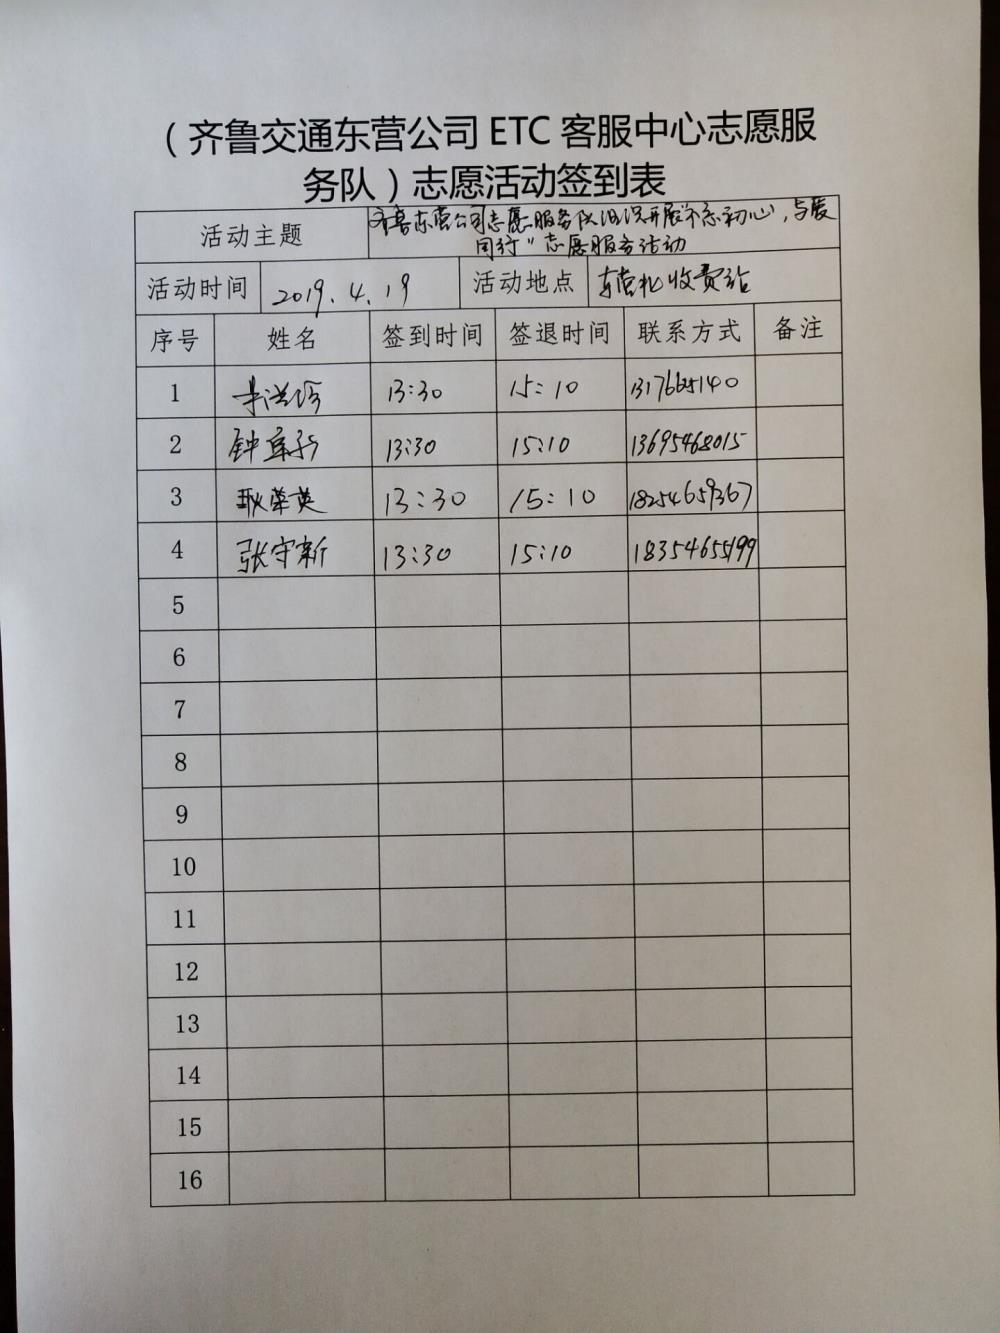 （齐鲁交通东营公司 ETC 客服中心志愿服
务队）志愿活动签到表
活动主题 齐鲁东营公司志愿服务队组织开展“不忘初心，与爱
同行”志愿服务活动
活动时间 2019.4.19 活动地点 东营北收费站
序号 姓名 签到时间 签退时间 联系方式 备注
1 13:30 15:10
2 钟 13:30 15:10 13695468015
3 耿荣英 13:30 15:10 18254659367
4 张守新 13:30 15:10
5
6
7
8
9
10
11
12
13
14
15
16